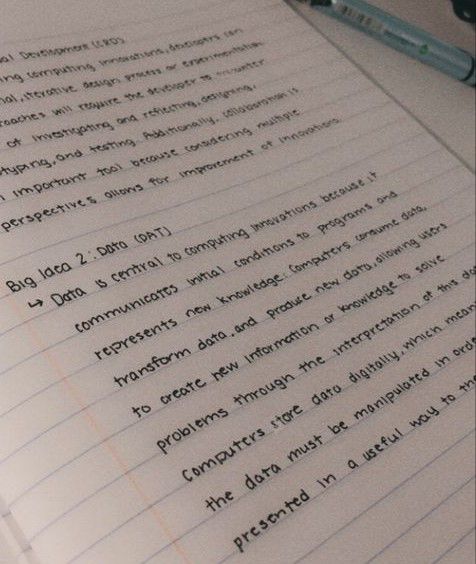 Development (CRD)
computing innovations, developers can
iterative design process or experimentation
will require the developer to encounter
of investigating and reflecting, designing,
and testing. Additionally, collaboration is
important tool because considering multiple
perspectives allows for improvement of innovations.
Big Idea 2: Data (DAT)
↳ Data is central to computing innovations because it
communicates initial conditions to programs and
represents new knowledge. Computers consume data,
transform data, and produce new data, allowing users
to create new information or knowledge to solve
problems through the interpretation of this
Computers store data digitally, which
the data must be manipulated in
presented in a useful way to